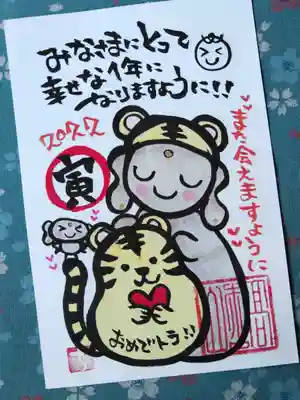 みなさまにとって
幸せな1年に
なりますように!!
また会えますように
2022
寅
笑
おめでトラ!!